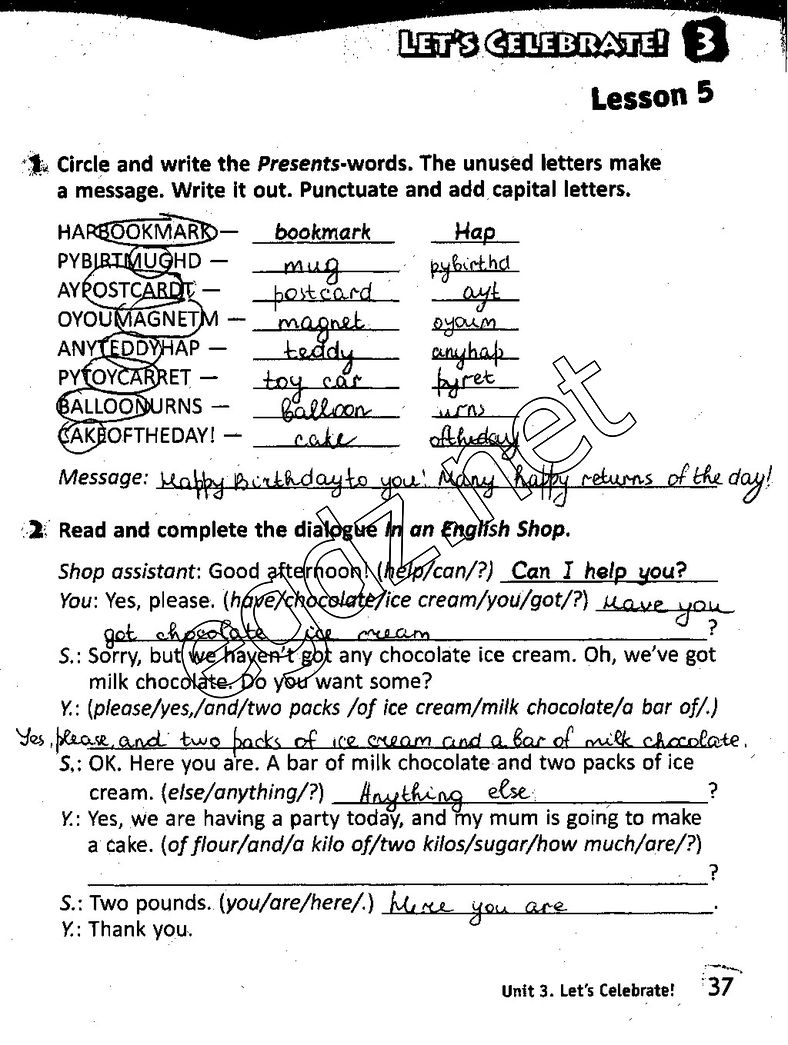 LET'S CELEBRATE! 3
Lesson 5
1 Circle and write the Presents-words. The unused letters make
a message. Write it out. Punctuate and add capital letters.
HAPBOOKMARK — bookmark Hap
PYBIRTMUGHD — mug pybirthd
AYPOSTCARDT — postcard ayt
OYOUMAGNETM — magnet oyoum
ANYTEDDYHAP — teddy anyhap
PYTOYCARRET — toy car pyret
BALLOONURNS — balloon urns
CAKEOFTHEDAY! — cake oftheday
Message: Happy Birthday to you! Many happy returns of the day!
2 Read and complete the dialogue in an English Shop.
Shop assistant: Good afternoon! (help/can/?) Can I help you?
You: Yes, please. (have/chocolate/ice cream/you/got/?) Have you
got chocolate ice cream ?
S.: Sorry, but we haven't got any chocolate ice cream. Oh, we've got
milk chocolate. Do you want some?
Y.: (please/yes,/and/two packs /of ice cream/milk chocolate/a bar of/.)
Yes, please, and two packs of ice cream and a bar of milk chocolate.
S.: OK. Here you are. A bar of milk chocolate and two packs of ice
cream. (else/anything/?) Anything else ?
Y.: Yes, we are having a party today, and my mum is going to make
a cake. (of flour/and/a kilo of/two kilos/sugar/how much/are/?)
?
S.: Two pounds. (you/are/here/.) Here you are .
Y.: Thank you.
Unit 3. Let's Celebrate! 37
egdz.net